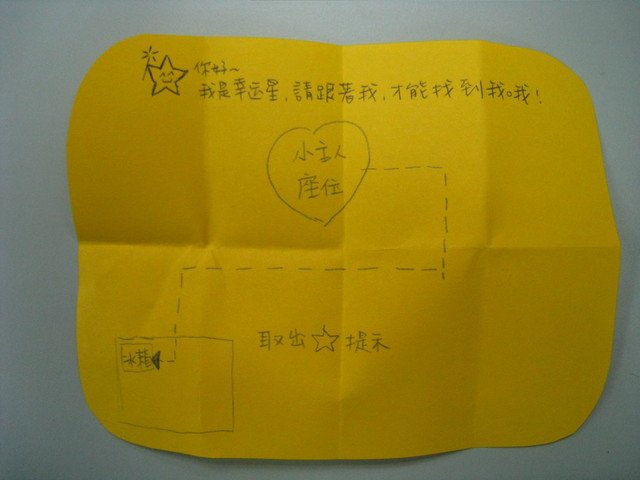 你好~
我是幸运星,請跟著我,才能找到我哦!
小主人
座位
取出☆提示
冰箱